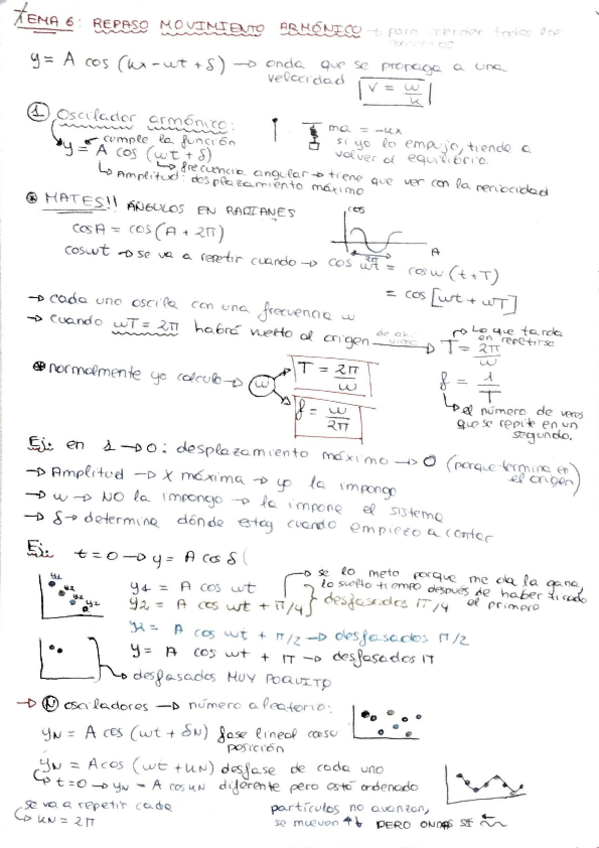 TEMA 6: REPASO MOVIMIENTO ARMÓNICO → para entender todos los
y = A cos (kx - ωt + δ) → onda que se propaga a una
velocidad v = ω/k
① Oscilador armónico:
cumple la función
y = A cos (ωt + δ)
frecuencia angular → tiene que ver con la periocidad
Amplitud: desplazamiento máximo
ma = -kx
si yo lo empujo, tiende a
volver al equilibrio.
⊛ MATES!! ÁNGULOS EN RADIANES
cos A = cos (A + 2π)
cos ωt → se va a repetir cuando → cos ωt = cos ω (t + T)
= cos [ωt + ωT]
cos
A
2π
→ cada uno oscila con una frecuencia ω
→ cuando ωT = 2π habrá vuelto al origen de ahí viene → T = 2π/ω
Lo que tarda
en repetirse
f = 1/T
el número de veces
que se repite en un
segundo.
⊛ normalmente yo calculo → ω
T = 2π/ω
f = ω/2π
Ej: en 1 → 0: desplazamiento máximo → 0 (porque termina en
el origen)
→ Amplitud → x máxima → yo la impongo
→ ω → NO la impongo → la impone el sistema
→ δ → determina dónde estoy cuando empiezo a contar
Ej: t = 0 → y = A cos δ (
y1 y2 y2 y2
y1 = A cos ωt
y2 = A cos ωt + π/4 } desfasados π/4
se lo meto porque me da la gana
lo suelto tiempo después de haber tirado
el primero
y2 = A cos ωt + π/2 → desfasados π/2
y = A cos ωt + π → desfasados π
→ desfasados MUY POQUITO
→ Ⓝ osciladores → número aleatorio:
yN = A cos (ωt + δN) fase lineal con su
posición
yN = A cos (ωt + kN) desfase de cada uno
↳ t = 0 → yN = A cos kN diferente pero está ordenado
se va a repetir cada
↳ kN = 2π
partículas no avanzan,
se mueven ↑↓ PERO ONDAS SÍ